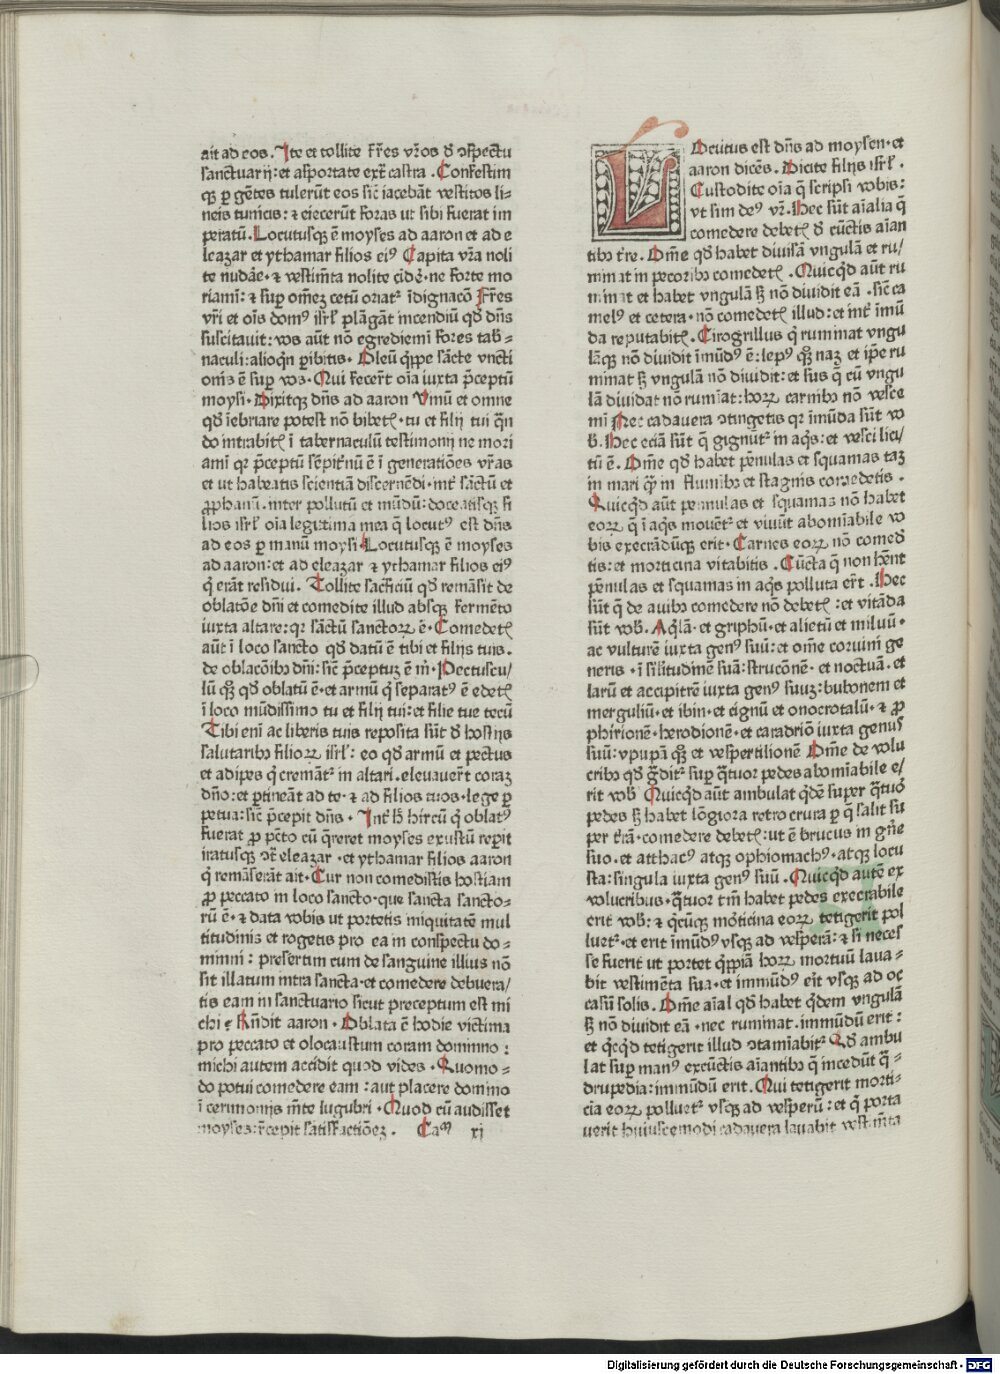 ait ad eos. Ite et tollite fr̄es vr̄os d̄ ꝯspectu
sanctuarij: et asportate ext̄ castra. Confestim
qꝫ ꝑgētes tulerūt eos sic̄ iacebāt vestitos li-
neis tunicis: ⁊ eiecerūt foras ut sibi fuerat im
peratū. Locutusqꝫ ē moyses ad aaron et ad e
leazar et ythamar filios eiꝰ Capita vr̄a noli
te nudāe· ⁊ vestim̄ta nolite cīdē· ne forte mo
riamī: ⁊ suꝑ om̄eꝫ cetū oriat᷑ īdignacō Fr̄es
vr̄i et oīs domꝰ isrl̄ plāgāt incendiū qd̄ dn̄s
suscitauit: vos aūt nō egrediemī fores tab-
naculi: alioqn̄ ꝑibitis. Oleū qꝑpe sācte vncti
onis ē suꝑ vos. Qui fecer̄t oīa iuxta p̄ceptū
moysi. Dixitqꝫ dn̄s ad aaron Vinū et omne
qd̄ īebriare potest nō bibet᷑· tu et filij tui qn̄
do intrabit᷑ ī tabernaculū testimonij ne mori
amī qr p̄ceptū sēpit̄nū ē ī generatiōes vr̄as
et ut habeatis scientiā discernēdi· int̄ sāctū et
ꝓphanū. inter pollutū et mūdū: doceatisqꝫ fi
lios isrl̄ oīa legittima mea q̄ locutꝰ est dn̄s
ad eos ꝑ manū moysi. Locutusqꝫ ē moyses
ad aaron: et ad eleazar ⁊ ythamar filios eiꝰ
q̇ erāt residui. Tollite sac̄ficiū qd̄ remāsit de
oblatōe dn̄i et comedite illud absqꝫ fermēto
iuxta altare: qr sāctū sanctoꝝ ē. Comedet᷑
aūt ī loco sancto qd̄ datū ē tibi et filijs tuis.
de oblacōibꝰ dn̄i: sic̄ p̄ceptuꝫ ē m̄. Pectuscu/
lū qꝫ qd̄ oblatū ē· et armū q̇ separatꝰ ē edet᷑
ī loco mūdissimo tu et filij tui: et filie tue tecū
Tibi enī ac liberis tuis reposita sūt d̄ hostijs
salutaribꝰ filioꝝ isrl̄: eo qd̄ armū et pectus
et adipes q̇ cremāt᷑ in altari. eleuauer̄t coraꝫ
dn̄o: et ꝑtineāt ad te· ⁊ ad filios tuos· lege ꝑ
petua: sic̄ p̄cepit dn̄s. Int̄ h̄ hircū q̇ oblatꝰ
fuerat ꝓ pc̄to cū q̄reret moyses exustū reꝑit
iratusqꝫ ꝯt̄ eleazar· et ythamar filios aaron
q̇ remāserāt ait. Cur non comedistis hostiam
ꝓ peccato in loco sancto· que sancta sancto-
rū ē· ⁊ data vobis ut portetis iniquitatē mul
titudinis et rogetis pro ea in conspectu do-
mini: presertim cum de sanguine illius nō
sit illatum intra sancta· et comedere debuera/
tis eam in sanctuario sicut preceptum est mi
chi. Rn̄dit aaron. Oblata ē hodie victima
pro peccato et olocaustum coram domino:
michi autem accidit quod vides. Quomo-
do potui comedere eam: aut placere domino
ī cerimonijs mēte lugubri. Quod cū audisset
moyses: recepit satisfactiōeꝫ. Caᵐ xj
LOcutus est dn̄s ad moysen· et
aaron dicēs. Dicite filijs isrl̄.
Custodite oīa q̄ scripsi vobis:
vt sim deꝰ vr̄. Hec sūt aīalia q̄
comedere debet᷑ d̄ cūctis aīan
tibꝰ tr̄e. Om̄e qd̄ habet diuisā vngulā et ru/
minat in pecoribꝰ comedet᷑. Quicqd̄ aūt ru
minat et habet vngulā sꝫ nō diuidit eā. sic̄ ca
melꝰ et cetera· nō comedet᷑ illud: et int̄ īmū
da reputabit᷑. Cirogrillus q̇ ruminat vngu
lāqꝫ nō diuidit īmūdꝰ ē: lepꝰ qꝫ naꝫ et ip̄e ru
minat sꝫ vngulā nō diuidit: et sus q̇ cū vngu
lā diuidat nō rumīat: hoꝝ carnibꝰ nō vesce
mī Nec cadauera ꝯtingetis qr īmūda sūt vo
b̄. Hec eciā sūt q̄ gignūt᷑ in aq̇s: et vesci lici/
tū ē. Om̄e qd̄ habet pēnulas et squamas taꝫ
in mari q̄ꝫ in fluminibꝰ et stagnis comedetis.
Quicqd̄ aūt pennulas et squamas nō habet
eoꝝ q̄ ī aq̇s mouēt᷑ et viuūt abomīabile vo
bis execrādūqꝫ erit. Carnes eoꝝ nō comed
tis: et morticina vitabitis. Cūcta q̄ non hn̄t
pēnulas et squamas in aq̇s polluta er̄t. Hec
sūt q̄ de auibꝰ comedere nō debet᷑: et vitāda
sūt vob̄. Aq̇lā· et griphū· et alietū et miluū·
ac vulturē iuxta genꝰ suū: et om̄e coruini ge
neris· ī silitudinē suā: strucōnē· et noctuā. et
larū et accipitrē iuxta genꝰ suuꝫ: bubonem et
mergulū· et ibin· et cignū et onocrotalū· ⁊ ꝓ
phirionē· herodionē· et caradriō iuxta genus
suū: vpupā qꝫ et vespertilionē Om̄e de volu
cribꝰ qd̄ ḡdit᷑ suꝑ q̄tuor pedes abomīabile e/
rit vob̄ Quicqd̄ aūt ambulat q̇dē super q̄tuō
pedes sꝫ habet lōgiora retro crura ꝑ q̄ salit su
per tr̄ā· comedere debet᷑: ut ē brucus in gn̄e
suo. et atthacꝰ atqꝫ ophiomachꝰ· atqꝫ locu
sta: singula iuxta genꝰ suū. Quicqd̄ autē ex
volucribus· q̄tuor tm̄ habet pedes execrabile
erit vob̄: ⁊ q̇cūqꝫ mōticina eoꝝ tetigerit pol
luet᷑· et erit īmūdꝰ vsqꝫ ad vesperā: ⁊ si neces
se fuerit ut portet q̇ppiā hoꝝ mortuū laua-
bit vestimēta sua· et immūdꝰ eīt vsqꝫ ad oc
casū solis. Om̄e aīal qd̄ habet q̇dem vngulā
sꝫ nō diuidit eā· nec ruminat. immūdū erit:
et q̇cqd̄ tetigerit illud ꝯtamīabit᷑ Qd̄ ambu
lat suꝑ manꝰ excūctis aīantibꝰ q̄ incedūt q̄-
drupedia: immūdū erit. Qui tetigerit morti-
cia eoꝝ polluet᷑ vsqꝫ ad vesperū: et q̇ porta
uerit huiuscemodi cadauera lauabit vestim̄ta
Digitalisierung gefördert durch die Deutsche Forschungsgemeinschaft - DFG